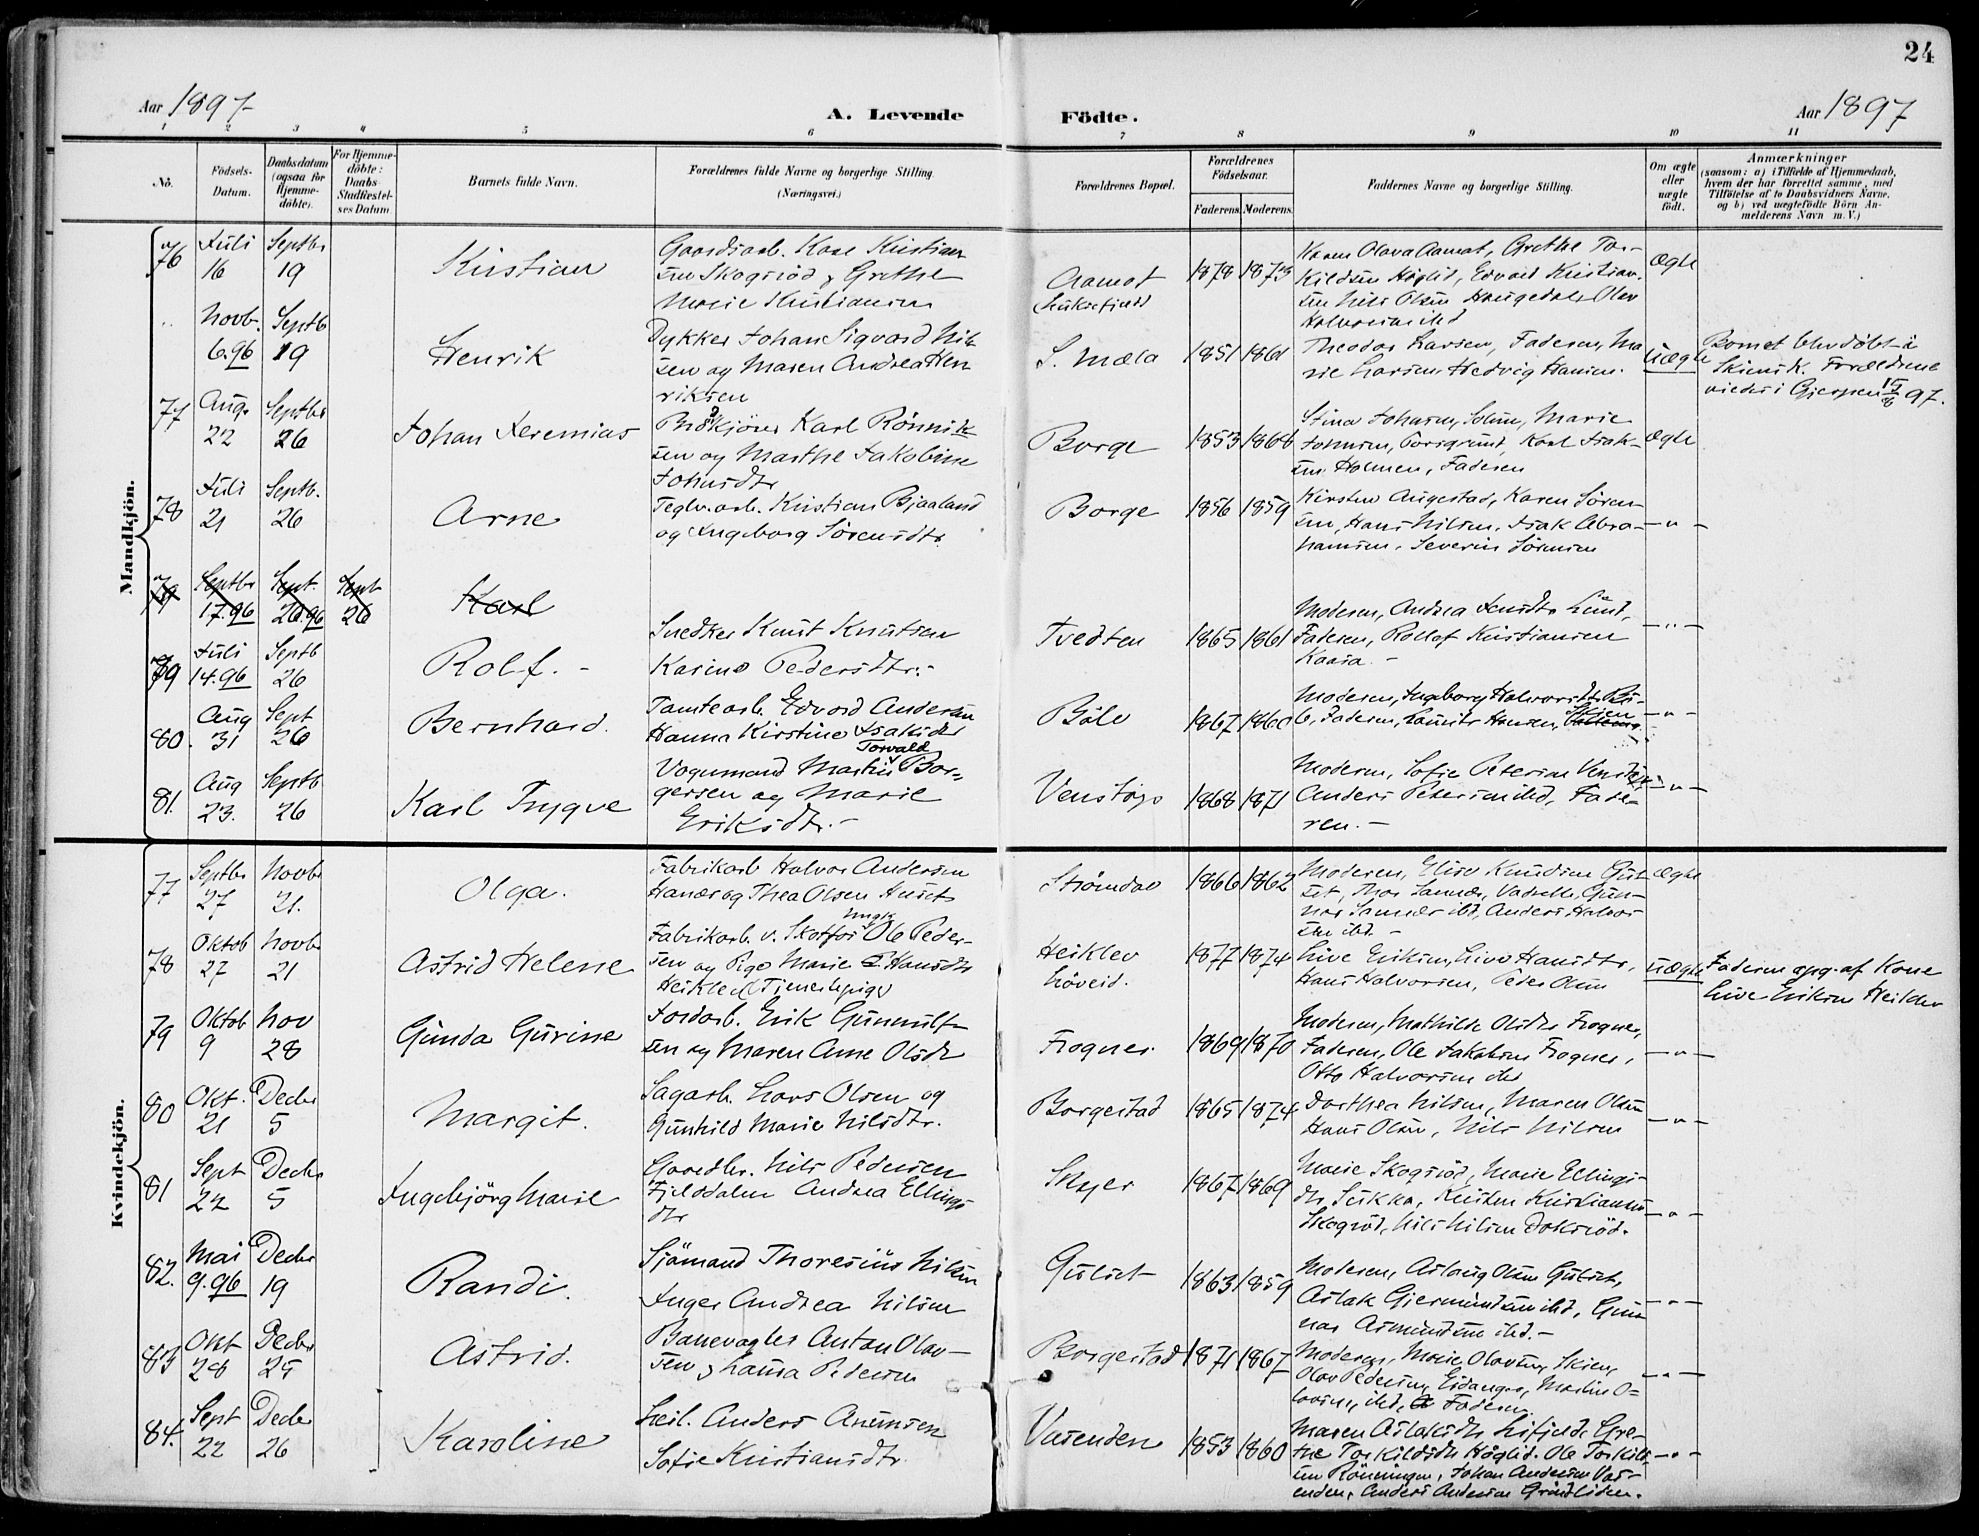 24
Aar 1897
A. Levende
Födte.
Aar 1897
1 2 3 4 5 6 7 8 9 10 11
No.
Födsels-
Datum.
Daabsdatum
(ogsaa for
Hjemme-
döbte).
For Hjemme-
döbte:
Daabs-
Stadfæstel-
ses Datum
Barnets fulde Navn.
Forældrenes fulde Navne og borgerlige Stilling.
(Næringsvei.)
Forældrenes Bopæl.
Forældrenes
Födselsaar.
Faderens. Moderens.
Faddernes Navne og borgerlige Stilling.
Om ægte
eller
uægte
født.
Anmærkninger
(saasom: a) i Tilfælde af Hjemmedaab,
hvem der har forrettet samme, med
Tilföielse af to Daabsvidners Navne,
og b) ved uægtefödte Börn An-
melderens Navn m. V.)
Mandkjön.
76
Juli
16
Septbr
19
Kristian
Gaardsarb. Kristian
sen Skogsröd & Grethe
Marie Kristiansen
Aamot
1878 1873
Karen Olava Aamot, Grethe Tor-
kildsen Höglid, Edvard Kristian-
sen Nils Olsen Haugedal, Olav
Halvorsen ibid
Ægte
Novb.
6.96
Septb
19
Henrik
Dykker Johan Sigvard Nil-
sen og Maren Andrea Hen
riksen
S. Mæla
1851 1861
Theodor Larsen, Faderen, Ma
rie Larsen, Hedvig Hansen.
Uægte
Barnet blev döbt i
Skien K. Forældrene
viedes i Gjerpen 97.
77
Aug.
22
Septbr
26
Johan Jeremias
Karl Rönnik-
sen og Marthe Jakobine
Johnsdtr
Borge
1853 1868
Stina Johnsen, Solum, Marie
Johnsen, Porsgrund, Karl Isak-
sen Holmen, Faderen
Ægte
78
Juli
21
Septb.
26
Arne
Teglv.arb. Kristian Bjaaland
og Ingeborg Sörensdtr.
Borge
1856 1859
Kirsten Augestad, Karen Sören-
sen, Hans Nilsen, Isak Abra-
hamsen, Severin Sörensen
— " —
79
Septbr
17.96
Sept.
20.96
Sept
26
Karl
79
Juli
14.96
Septb
26
Rolf. -
Snedker Knut Knutsen
Karine Pedersdtr.-
Tvedten
1865 1861
Moderen, Andrea Lund,
Faderen, Rolf Kristiansen
Kaasa. -
— " —
80.
Aug
31
Sept
26
Bernhard.
Tomtearb. Edvard Andersen
Hanna Kirstine Isaksdtr
Böle
1867 1860
Moderen, Ingeborg Halvorsdtr Bö-
le, Faderen, Laurits Hansen, Skien
— " —
81.
Aug
23.
Septb
26
Karl Trygve
Torvald
Vognmand Martin Bor-
gersen og Marie
Eriksdtr. -
Venstöp
1868 1871
Moderen, Sofie Petersen Venstöp
Anders Petersen ibid, Fade-
ren. -
— " —
Kvindekjön.
77
Septbr
27
Novbr
21.
Olga.
Fabrikarb Halvor Andersen
og Thea Olsen
Strömdal
1866 1862
Moderen, Elise Knudsen
Gun-
nar ibd, Anders Halvor
sen ibd. -
Ægte
78
Oktob
27
Novbr
21
Astrid Helene
Ungk.
Fabrikarb. v. Skotfos Ole Peder-
sen og Pige Marie Hansdtr
Heiklev (Tjenestepige
Heiklev
Löveid.
1877 1874
Live Eriksen, Live Hansdtr,
Hans Halvorsen, Peder Olsen
Uægte
Faderen opg. af Kone
Live Eriksen Heiklev
79
Oktob
9
Nov
28
Gunda Gurine
Jordarb. Erik Gunnulf-
sen og Maren Anne Olsdtr
Frogner
1869 1870
Moderen, Mathilde Olsdtr Frogner,
Faderen, Ole Jakobsen Frogner,
Otto Halvorsen ibd
— " —
80
Okt.
21
Decbr
5
Margit.
Sagarb. Lars Olsen og
Gunhild Marie Nilsdtr.
Borgestad
1865 1874
Dorthea Nilsen, Maren Olsen
Hans Olsen, Nils Nilsen
— " —
81
Sept
22
Decbr
5
Ingebjörg Marie
Gaardbr. Nils Pedersen
Fjelddalen Andrea Ellings
dtr
Skyer
1867 1869
Marie Skogsröd, Marie Ellings-
dtr Kristen Kristiansen
Skogsröd, Nils Nilsen
— " —
82.
Mai
9.96
Decbr
19
Randi.
Sjömand Thoresius Nilsen
Inger Andrea Nilsen
Gulset
1863 1859
Moderen, Aslaug Olsen Gulset,
Aslak Gjermundsen ibd, Gun
nar Asmundsen ibd. -
— " —
83
Okt
28
Decbr
25
Astrid.
Banevogter Anton Olav-
sen & Laura Pedersen
Borgestad
1871 1867
Moderen, Marie Olavsen, Skien,
Olav Pedersen, Eidanger, Martin O-
lavsen, ibd, Faderen
— " —
84.
Sept
22
Decbr
26
Karoline
Leil. Anders Anunsen
Sofie Kristiansdtr.
Vasenden
1853 1860
Maren Aslaksdtr Lifjeld, Gre-
the Torkildsdtr Höglid, Ole Torkild
sen Rönningen, Johan Andersen Vas-
enden, Anders Andersen Grindlien.
— " —